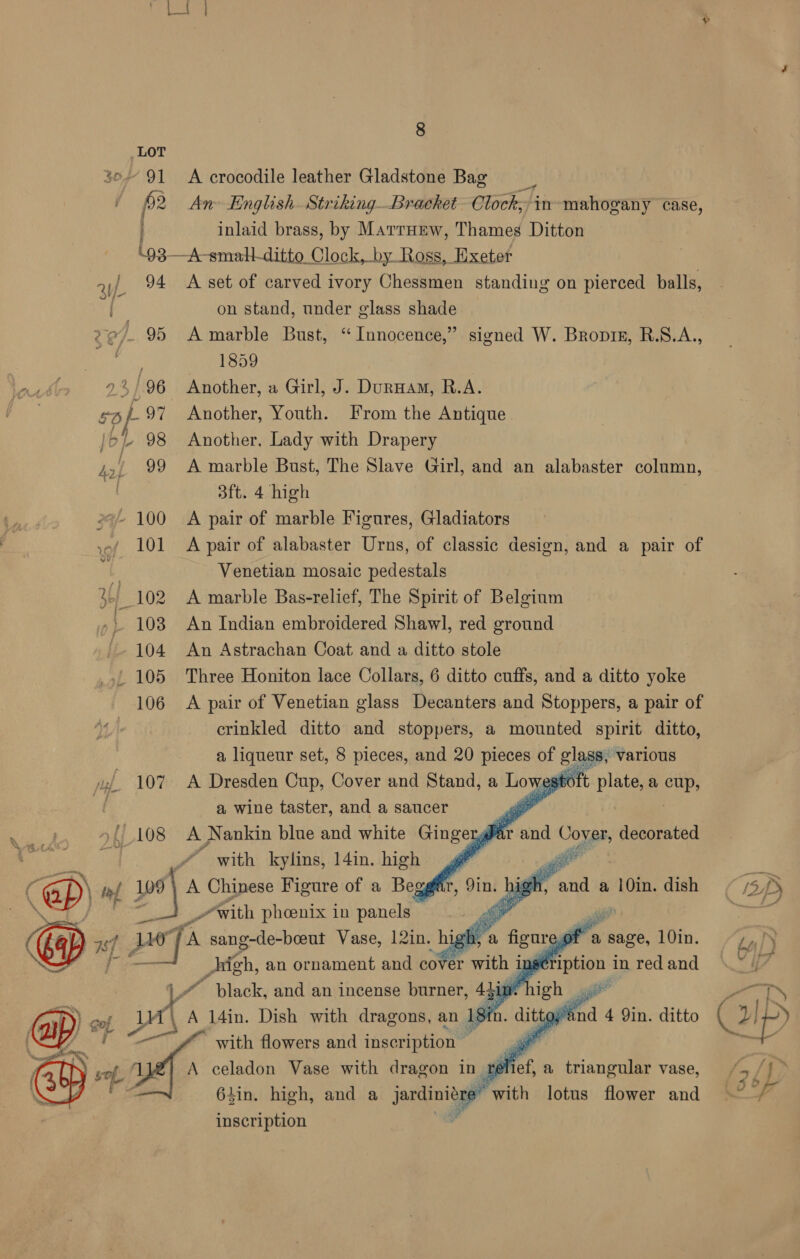 8
LOT
30/- 91 A crocodile leather Gladstone Bag
92 An English Striking Bracket Clock, in mahogany case,
inlaid brass, by MATTHEW, Thames Ditton
93 A small ditto Clock, by Ross, Exeter
94 A set of carved ivory Chessmen standing on pierced balls,
on stand, under glass shade
95 A marble Bust, “Innocence,” signed W. BRODIE, R.S.A.,
1859
23/ 96 Another, a Girl, J. DURHAM, R.A.
97 Another, Youth. From the Antique
98 Another, Lady with Drapery
42/ 99 A marble Bust, The Slave Girl, and an alabaster column,
3ft. 4 high
100 A pair of marble Figures, Gladiators
101 A pair of alabaster Urns, of classic design, and a pair of
Venetian mosaic pedestals
102 A marble Bas-relief, The Spirit of Belgium
103 An Indian embroidered Shawl, red ground
104 An Astrachan Coat and a ditto stole
105 Three Honiton lace Collars, 6 ditto cuffs, and a ditto yoke
106 A pair of Venetian glass Decanters and Stoppers, a pair of
crinkled ditto and stoppers, a mounted spirit ditto,
a liqueur set, 8 pieces, and 20 pieces of glass, various
107 A Dresden Cup, Cover and Stand, a Lowestoft plate, a cup,
a wine taster, and a saucer
108 A Nankin blue and white Ginger Jar and Cover, decorated
with kylins, 14in. high
109 A Chinese Figure of a Beggar, 9in. high, and a 10in. dish
with phœnix in panels
110 A sang-de-bœut Vase, 12in. high, a figure of a sage, 10in.
high, an ornament and cover with inscription in red and
black, and an incense burner, 4½in. high
111 A 14in. Dish with dragons, an 18in. ditto, and 4 9in. ditto
with flowers and inscription
112 A celadon Vase with dragon in relief, a triangular vase,
6½in. high, and a jardinière with lotus flower and
inscription